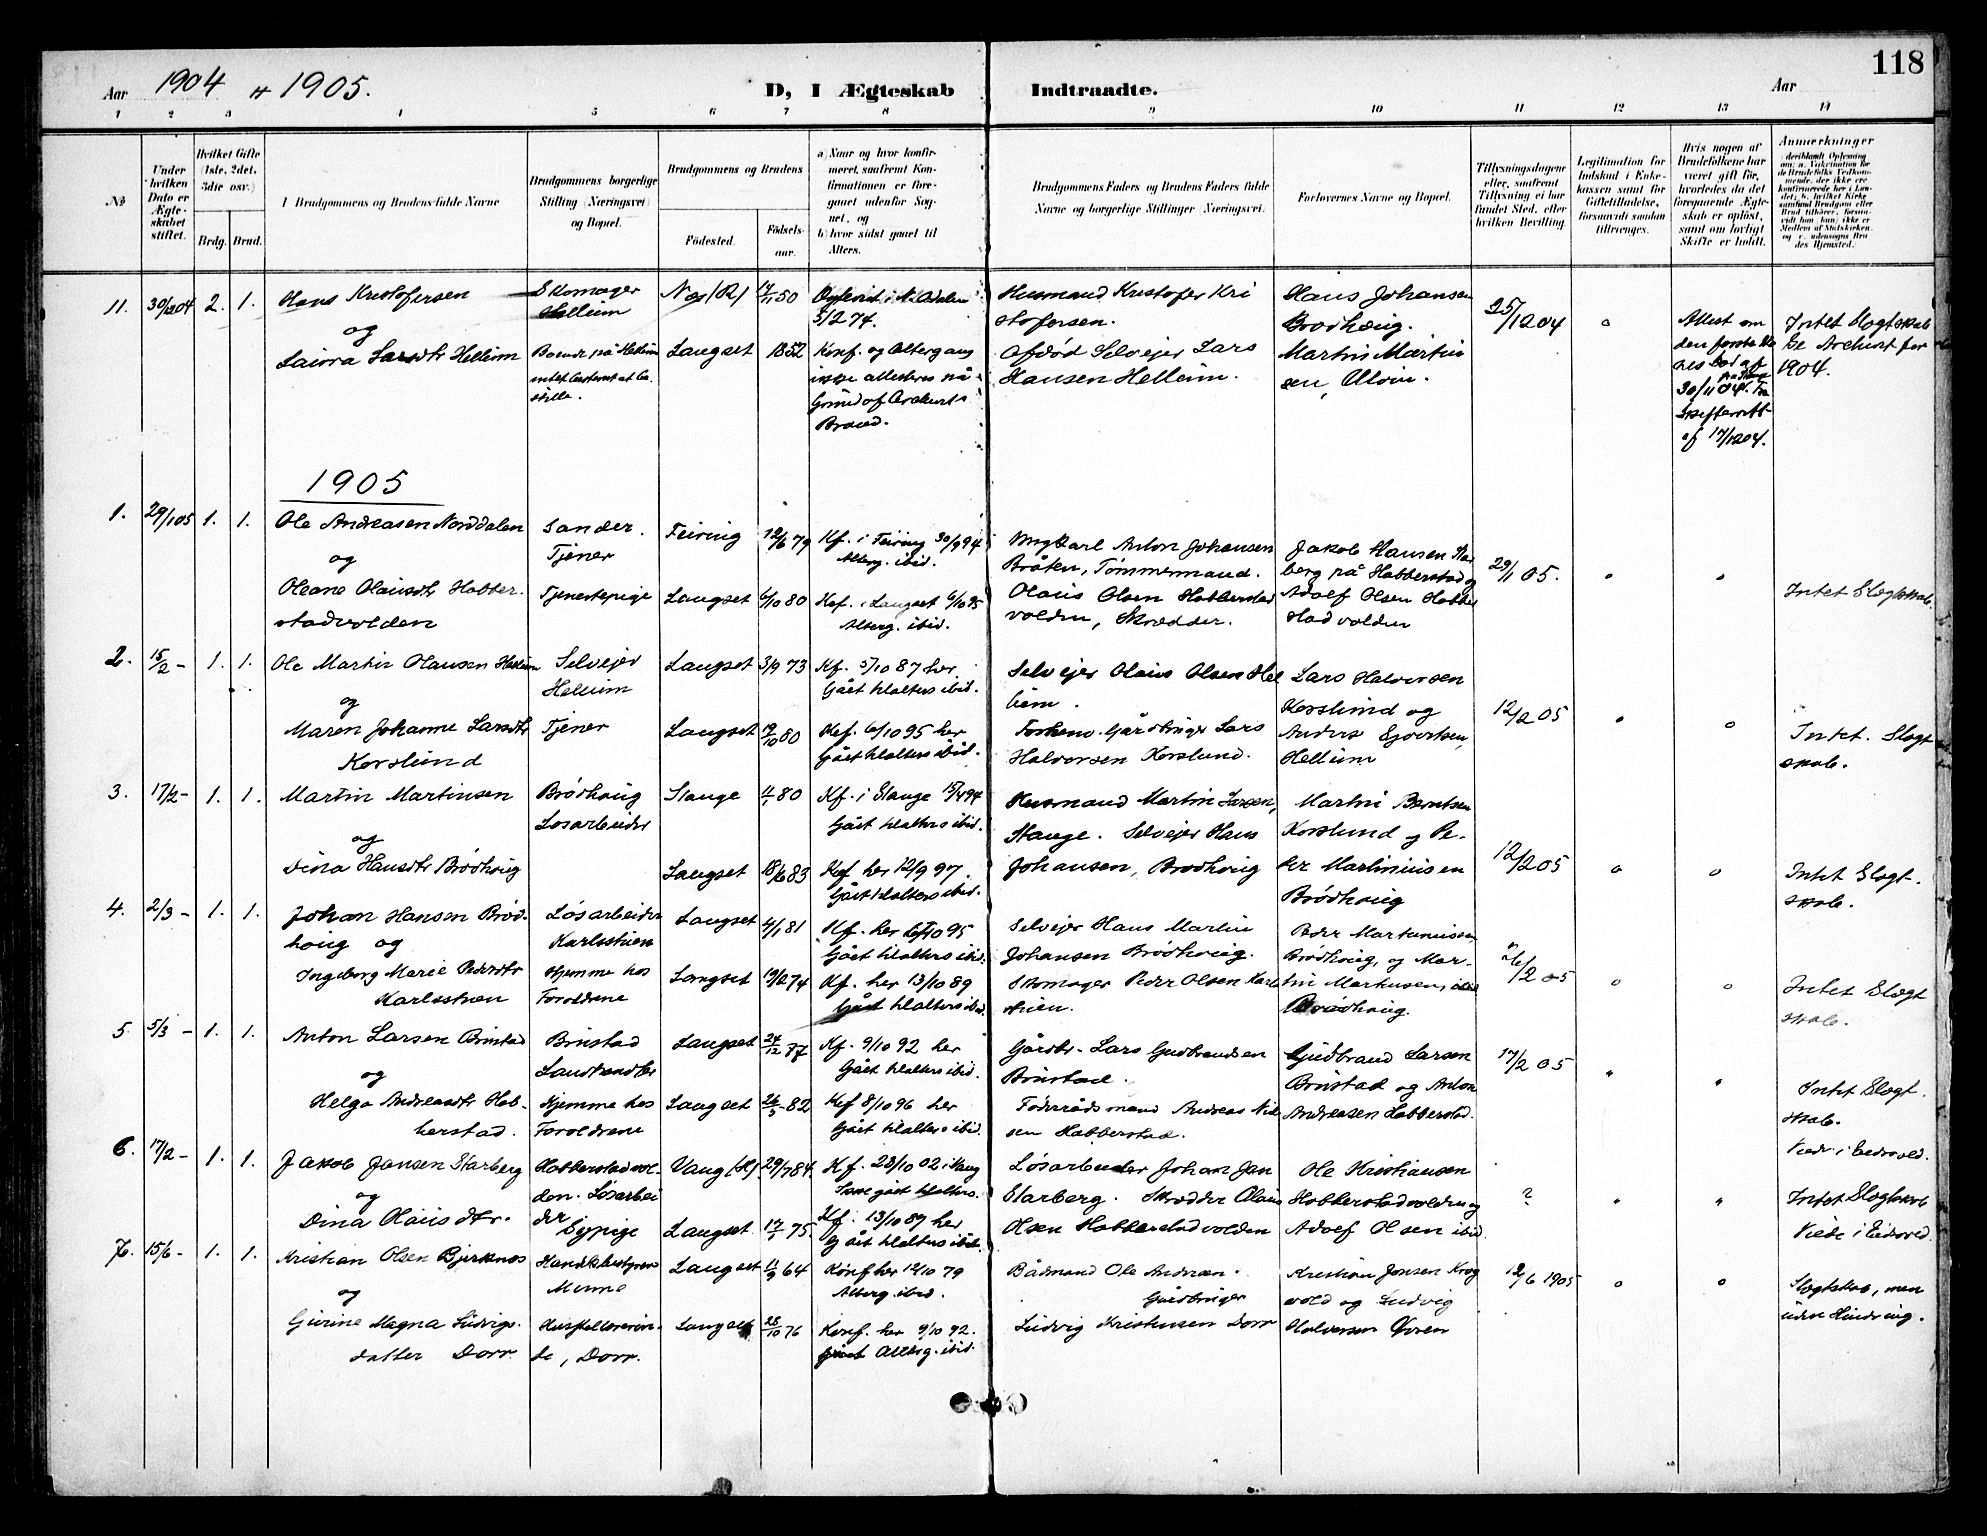 118
Aar 1904 & 1905.
D, I Ægteskab Indtraadte.
Aar
1 2 3 4 5 6 7 8 9 10 11 12 13 14
No
Under hvilken Dato er Ægteskabet stiftet.
Hvilket Gifte (1ste, 2det, 3die osv.)
Brdg. Brud.
Brudgommens og Brudens fulde Navne
Brudgommens borgerlige Stilling (Næringsvei) og Bopæl.
Brudgommens og Brudens
Födested.
Födselsaar.
a) Naar og hvor konfirmeret, saafremt Konfirmationen er foregaaet udenfor Sognet, og
b) hvor sidst gaaet til Alters.
Brudgommens Faders og Brudens Faders fulde Navne og borgerlige Stillinger (Næringsvei).
Forlovernes Navne og Bopæl.
Tillysningsdagene eller, saafremt Tillysning ei har fundet Sted, efter hvilken Bevilling.
Legitimation for Indskud i Enkekassen samt for Giftetilladelse, forsaavidt saadan tiltrænges.
Hvis nogen af Brudefolkene har været gift før, hvorledes da det foregaaende Ægteskab er opløst, samt om lovligt Skifte er holdt.
Anmerkninger
11. 30/12 04 2. 1. Hans Kristofersen
og
Laura Larsdtr Helleim
Skomager Helleim
Næs (R) 17/11 50
Hüsmand Kristofer Kristofersen.
Hans Johansen Brodhoug.
25/12 04
Laugset 1852
Konf. og Alterg ans ikke attesteres på Grund af Archivets Brand.
Afdød Selvejer Lars Hansen Helleim.
Martin Martinsen, Ulvin.
30/11 04
af 17/12 04.
Intet Slegtskab
1904.
1905
1. 29/1 05 1. 1. Ole Andreasen Norddalen
og
Oleane Olausdtr Habberstadvolden
Sander. Tjener
Feiring 12/6 79
Kf. i Feiring 30/9 94 Alterg. ibid.
Anton Johansen Bråten, Tömmermand.
Jakob Hansen Starberg på Habberstad og
29/1 05.
Tjenestepige Laugset 6/10 80
Kof. i Laugset 6/10 95 Alterg. ibid.
Olaus Olsen Habberstadvolden, Skrædder.
Adolf Olsen Habberstadvolden
Intet Slegtskab.
2. 15/2 - 1. 1. Ole Martin Olausen Helleim
og
Maren Johanne Larsdtr Korslund
Selvejer Helleim
Laugset 3/9 73
Kf. 5/10 87 her. Gået til alters ibid.
Selvejer Olaus Olsen Helleim.
Lars Halvorsen Korslund og
12/2 05
Tjener Laugset 19/10 80
Kof. 6/10 95 her Gået til alters ibid.
Gårdbruger Lars Halvorsen Korslund.
Anders Helleim
Intet. Slegtskab.
3. 17/2 - 1. 1. Martin Martinsen
og
Dina Hansdtr Brödhoug
Brödhoug Losarbeider
Stange 11/1 80
Kf. i Stange 15/4 94 Gået til alters ibid.
Husmand Martin Larsen, Stange. Selvejer Hans Johansen, Brodhoug
Martin Berntsen Korslund og Peder Martiniusen Brödhoug
12/2 05
Laugset 18/6 83
Kof her 12/9 97. Gået til alters ibid.
Intet Slegtskab.
4. 2/3 - 1. 1. Johan Hansen Brödhoug og
Ingeborg Marie Pedersdtr Karlsstuen
Lösarbeider Karlsstuen
Laugset 4/1 81
Kf. her 6/10 95 Gået til alters ibid.
Selvejer Hans Martin Johansen Brödhoug.
Peder Martiniussen Brödhoug, og Martin Markusen, ibid Brödhoug.
26/2 05
Hjemme hos Foreldrene Laugset 19/2 74
Kf. her 13/10 89 Gået til alters ibid.
Skomager Peder Olsen Karlstuen.
Intet Slegtskab.
5. 5/3 - 1. 1. Anton Larsen Brustad
og
Helga Andreasdtr Habberstad.
Brustad
Laugset 24/12 77
Kf. 9/10 92 her Gået til alters ibid.
Gårdbr. Lars Gudbrandsen Brustad.
Gudbrand Larsen Brustad og Anton Andreassen Habberstad.
17/2 05
Hjemme hos Foreldrene Laugset 26/5 82
Kof 8/10 96 her Gået til alters ibid.
Föderrådsmand Andreas Nilsen Habberstad.
Intet Slegtskab.
6. 17/2 - 1. 1. Jakob Jansen Starberg
og
Dina Olausdtr.
Habberstadvolden. Lösarbeider
Vang (H). 29/7 84.
Kf. 28/10 02 i Vang
Lösarbeider Johan Jansen Starberg. Skrædder Olaus Olsen Habberstadvolden
Ole Kristiansen Habberstadvolden og Adolf Olsen ibid
?
Sypige Laugset 17/1 75
Kf. 13/10 89 her Gået til alters ibid.
Viede i Eidsvold.
Intet Slegtskab
Viede i Eidsvold.
7. 15/6 - 1. 1. Kristian Olsen Bjerknes
og
Gurine Magna Ludvigsdatter Dorr.
Handelsbestyrer Minne
Laugset 11/9 64
Konf her 12/10 79 Alterg. ibid.
Bådmand Ole Andersen.
Gårdbruger
Kristian Jensen Krogvold og Ludvig Halvorsen Ovren
12/6 1905
Dorr. Laugset 28/10 76
Konf. her 9/10 92. Alterg. ibid.
Ludvig Kristiansen Dorr
Slegtskab, men uden Hindring.